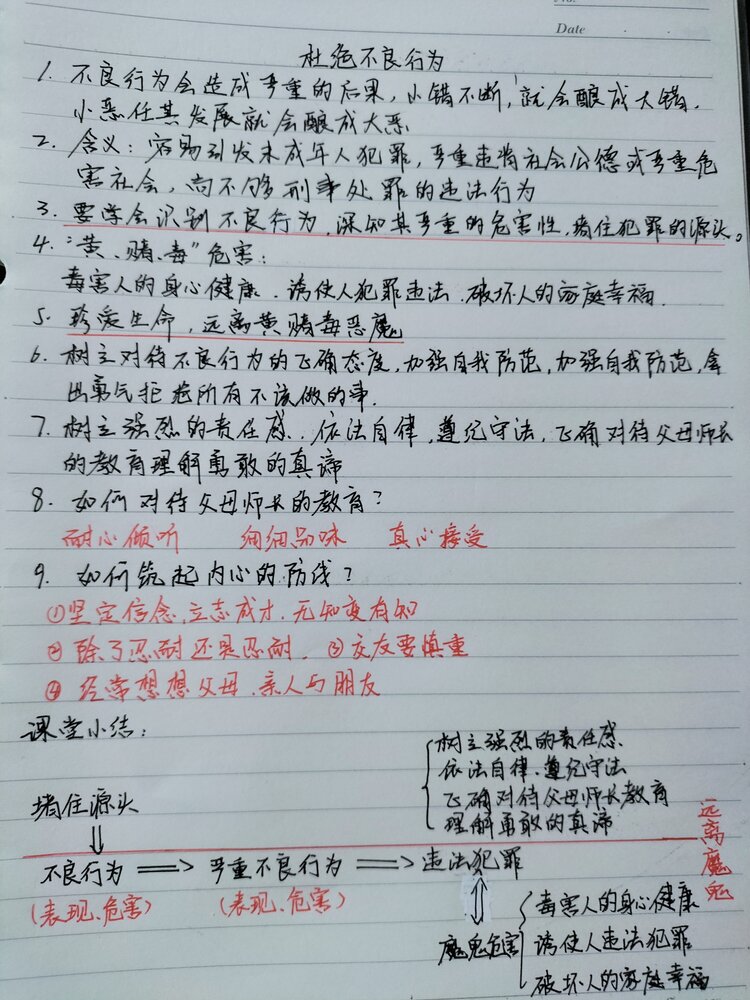 No.
Date
杜绝不良行为
1. 不良行为会造成严重的后果，小错不断，就会酿成大错.
小恶任其发展就会酿成大恶
2. 含义：容易引发未成年人犯罪，严重违背社会公德或严重危
害社会，尚不够刑事处罪的违法行为
3. 要学会识别不良行为，深知其严重的危害性，堵住犯罪的源头。
4. “黄、赌、毒”危害：
毒害人的身心健康．诱使人犯罪违法．破坏人的家庭幸福．
5. 珍爱生命，远离黄赌毒恶魔
6. 树立对待不良行为的正确态度，加强自我防范，加强自我防范，拿
出勇气拒绝所有不该做的事.
7. 树立强烈的责任感．依法自律，遵纪守法，正确对待父母师长
的教育理解勇敢的真谛
8. 如何对待父母师长的教育？
耐心倾听 细细品味 真心接受
9. 如何筑起内心的防线？
①坚定信念，立志成才．无知变有知
② 除了忍耐还是忍耐． ③ 交友要慎重
④ 经常想想父母．亲人与朋友
课堂小结：
树立强烈的责任感
依法自律．遵纪守法
正确对待父母师长教育
理解勇敢的真谛
堵住源头
远离魔鬼
不良行为 ⟹ 严重不良行为 ⟹ 违法犯罪
(表现、危害) (表现、危害)
魔鬼危害
毒害人的身心健康
诱使人违法犯罪
破坏人的家庭幸福